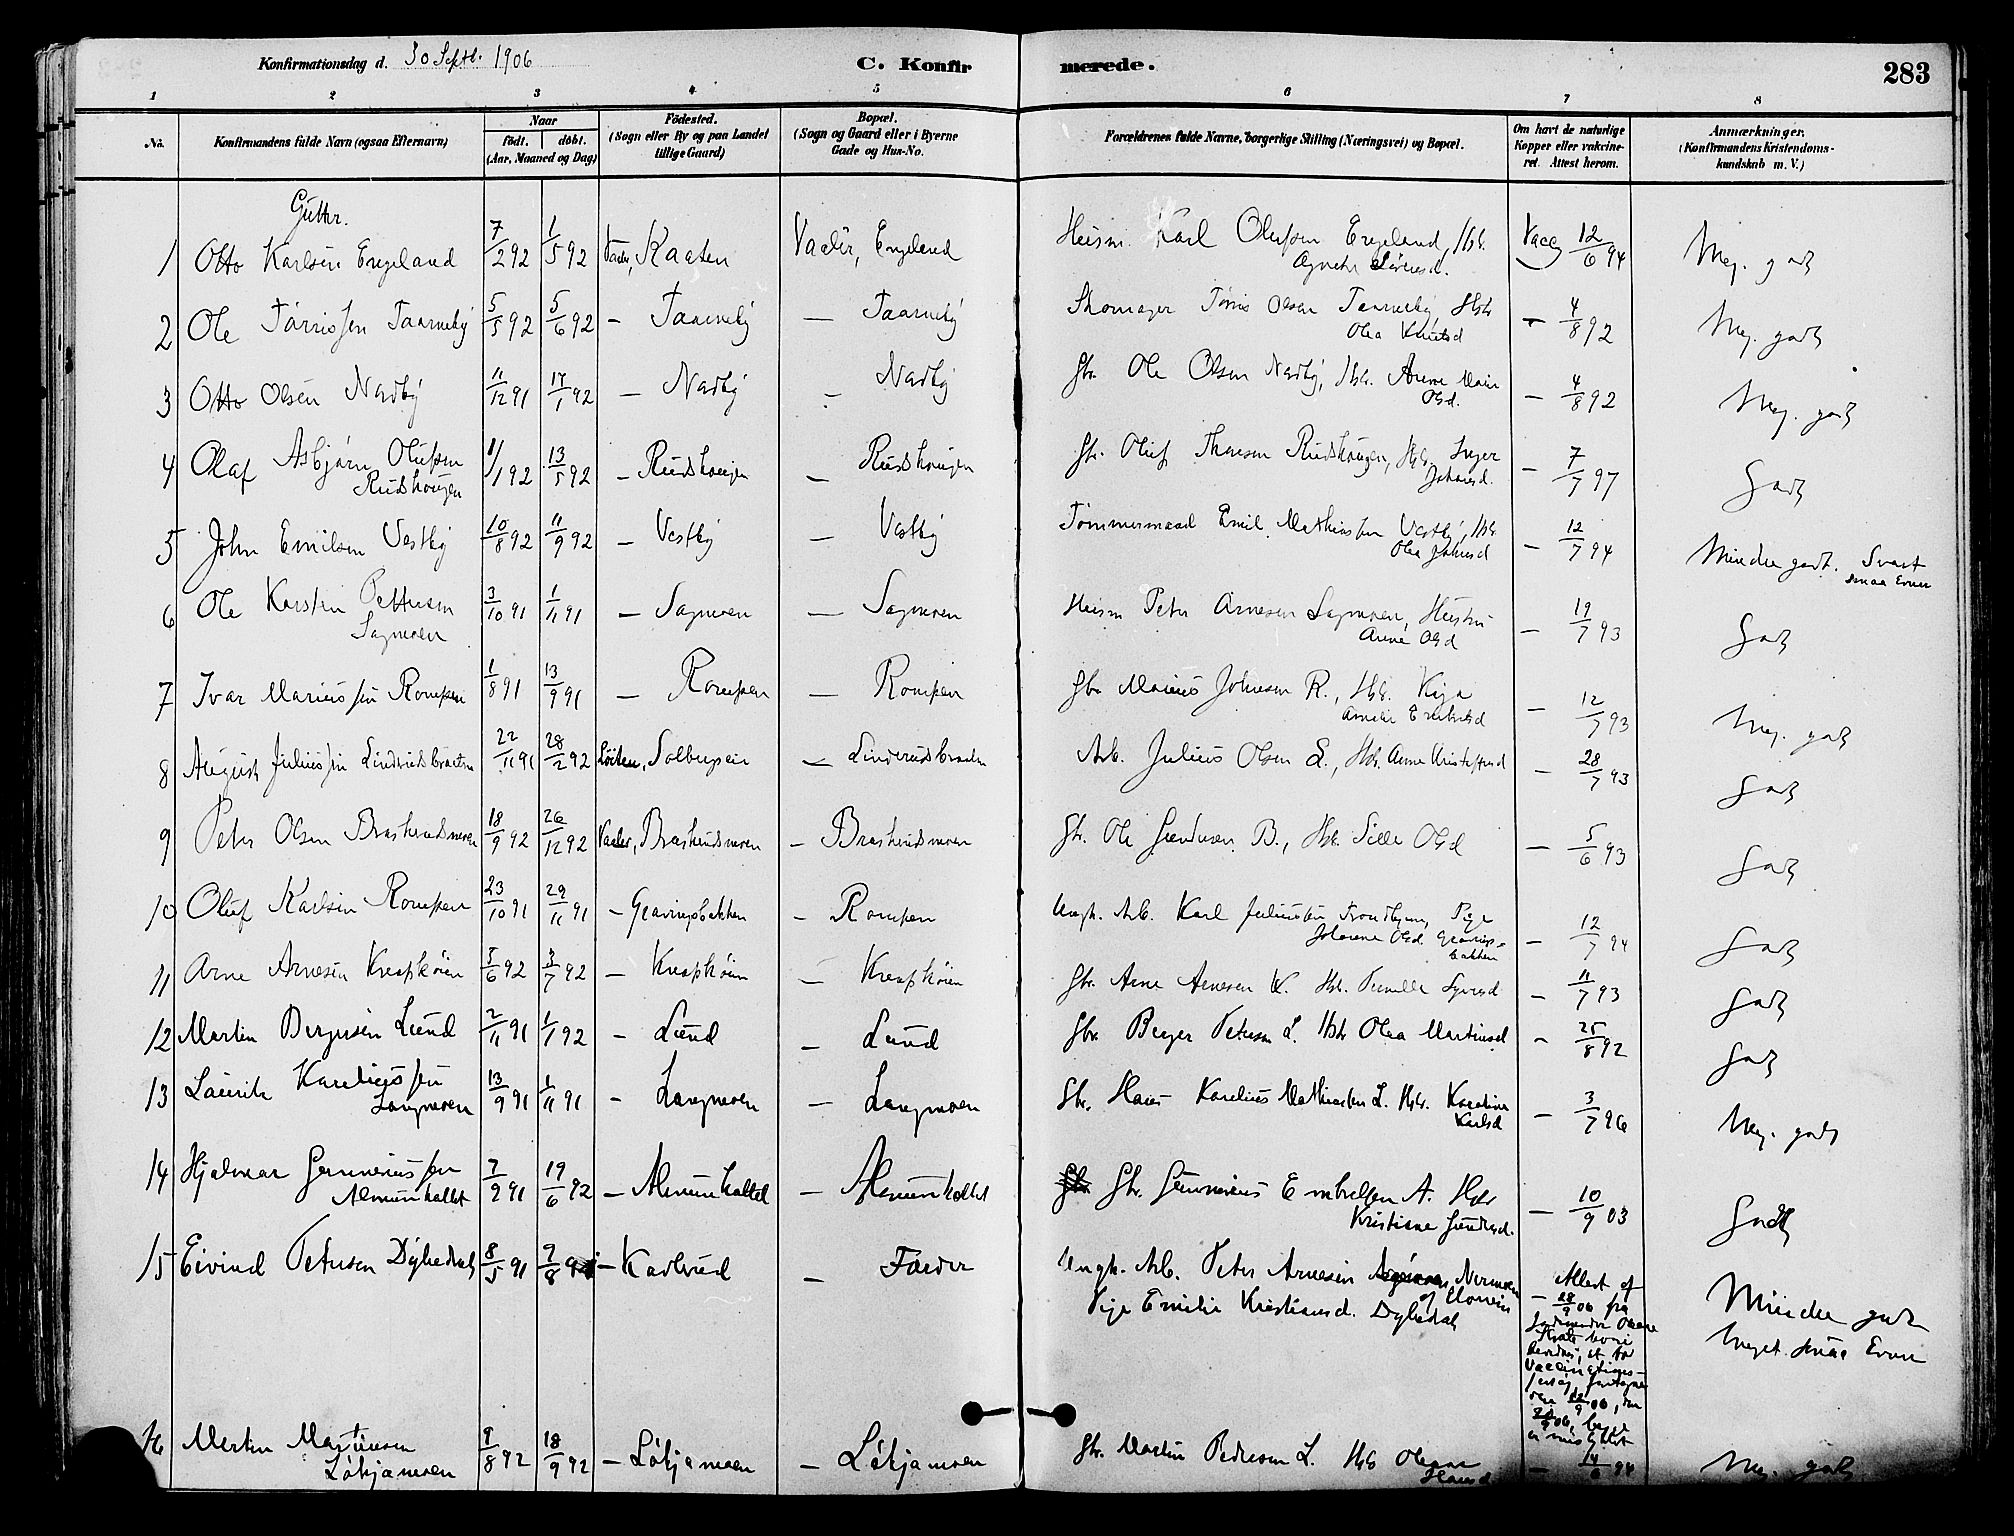 Konfirmationsdag d. 30 Septb. 1906
C. Konfirmerede.
283
1 2 3 4 5 6 7 8
No.
Konfirmandens fulde Navn (ogsaa Efternavn)
Naar
født. døbt.
(Aar, Maaned og Dag)
Fødested.
(Sogn eller By og paa Landet
tillige Gaard)
Bopæl.
(Sogn og Gaard eller i Byerne
Gade og Hus-No.
Forældrenes fulde Navne, borgerlige Stilling (Næringsvei) og Bopæl.
Om havt de naturlige
Kopper eller vakcine-
ret. Attest herom.
Anmærkninger.
(Konfirmandens Kristendoms-
kundskab m. V.)
Gutter.
1 Otto Karlsen Engeland 7/2 92 1/5 92 Vaaler, Kaaten Vaaler, Engeland Husm. Karl Olufsen Engeland, Hstr. Vacc. 12/6 94 Meg. godt
Agnethe Sørensd.
2 Ole Tørrissen Taarneby 5/5 92 5/6 92 — Taarneby — Taarneby Skomager Tørris Olsen Taarneby Hstr — 4/8 92 Meg. godt
Olea Knutsd
3 Otto Olsen Nadby 11/12 91 17/1 92 — Nadby — Nadby Gbr. Ole Olsen Nadby, Hstr. Anne Marie — 4/8 92 Meg. godt
Olsd.
4 Olaf Asbjørn Olufsen 1/1 92 13/5 92 — Rudshaugen — Rudshaugen Gbr. Oluf Thoresen Rudshaugen, Hstr. Inger — 7/7 97 Godt
Rudshaugen Johansd.
5 John Emilsen Vestby 10/8 92 11/9 92 — Vestby — Vestby Tømmermand Emil Mathiassen Vestby, Hstr. — 12/7 94 Mindre godt. Svart
Olea Johnsd smaa Evner
6 Ole Karsten Pettersen 3/10 91 1/11 91 — Sagmoen — Sagmoen Husm Peter Arnesen Sagmoen, Hustru — 19/7 93 Godt
Sagmoen Anne Olsd
7 Ivar Mariussen Rompen 1/8 91 13/9 91 — Rompen — Rompen Gbr Marius Johnsen R., Hstr. — 12/7 93 Meg. godt
Amalie Embretsd
8 August Juliussen Linderudsbraaten 22/11 91 28/2 92 Løiten, Solbergseie — Linderudsbraaten Arb. Julius Olsen L., Hstr. Anne Kristoffersd — 28/7 93 Godt
9 Peter Olsen Braskerudsmoen 18/9 92 26/12 92 Vaaler, Braskerudsmoen — Braskerudsmoen Gbr. Ole Gundersen B., Hstr. Sille Olsd — 5/6 93 Godt
10 Oluf Karlsen Rompen 23/10 91 29/11 91 — Gravingsbakken — Rompen Ungk. Arb. Karl Juliussen Trondhjem, Pige — 12/7 94 Godt
Johanne Olsd Gravings-
bakken
11 Arne Arnesen Knapkøien 5/6 92 3/7 92 — Knapkøien — Knapkøien Gbr. Arne Arnesen K. Hstr. Pernille Syversd — 11/7 93 Godt
12 Martin Bergersen Lund 2/11 91 1/1 92 — Lund — Lund Gbr. Berger Petersen L. Hstr Olea Martinsd — 25/8 92 Godt
13 Laurits Kareliussen 13/9 91 1/11 91 — Langmoen — Langmoen Gbr. Hans Karelius Mathiassen L. Hstr. Karoline — 3/7 96 Meg. godt
Langmoen Karlsd
14 Hjalmar Gunneriussen 7/9 91 19/6 92 — Almunkollet — Almunkollet Gbr. Gunnerius Embretsen A. Hstr — 10/9 03 Godt
Almunkollet Kristiane Gundersd.
15 Eivind Petersen Dybedal 8/5 91 9/8 91 — Karlsrud — Førder Ungk. Arb. Peter Arnesen Nermoen Attest af Mindre godt
af Elverum — 28/9 06 fra
Pige Emilie Kristiansd. Dybedal Meget smaa Evner
Vaccinations-
16 Martin Martinsen 9/8 92 18/9 92 — Løkjamoen — Løkjamoen Gbr. Martin Pedersen L. Hstr Oleane — 14/6 94 Meg. godt
Løkjamoen Hansd